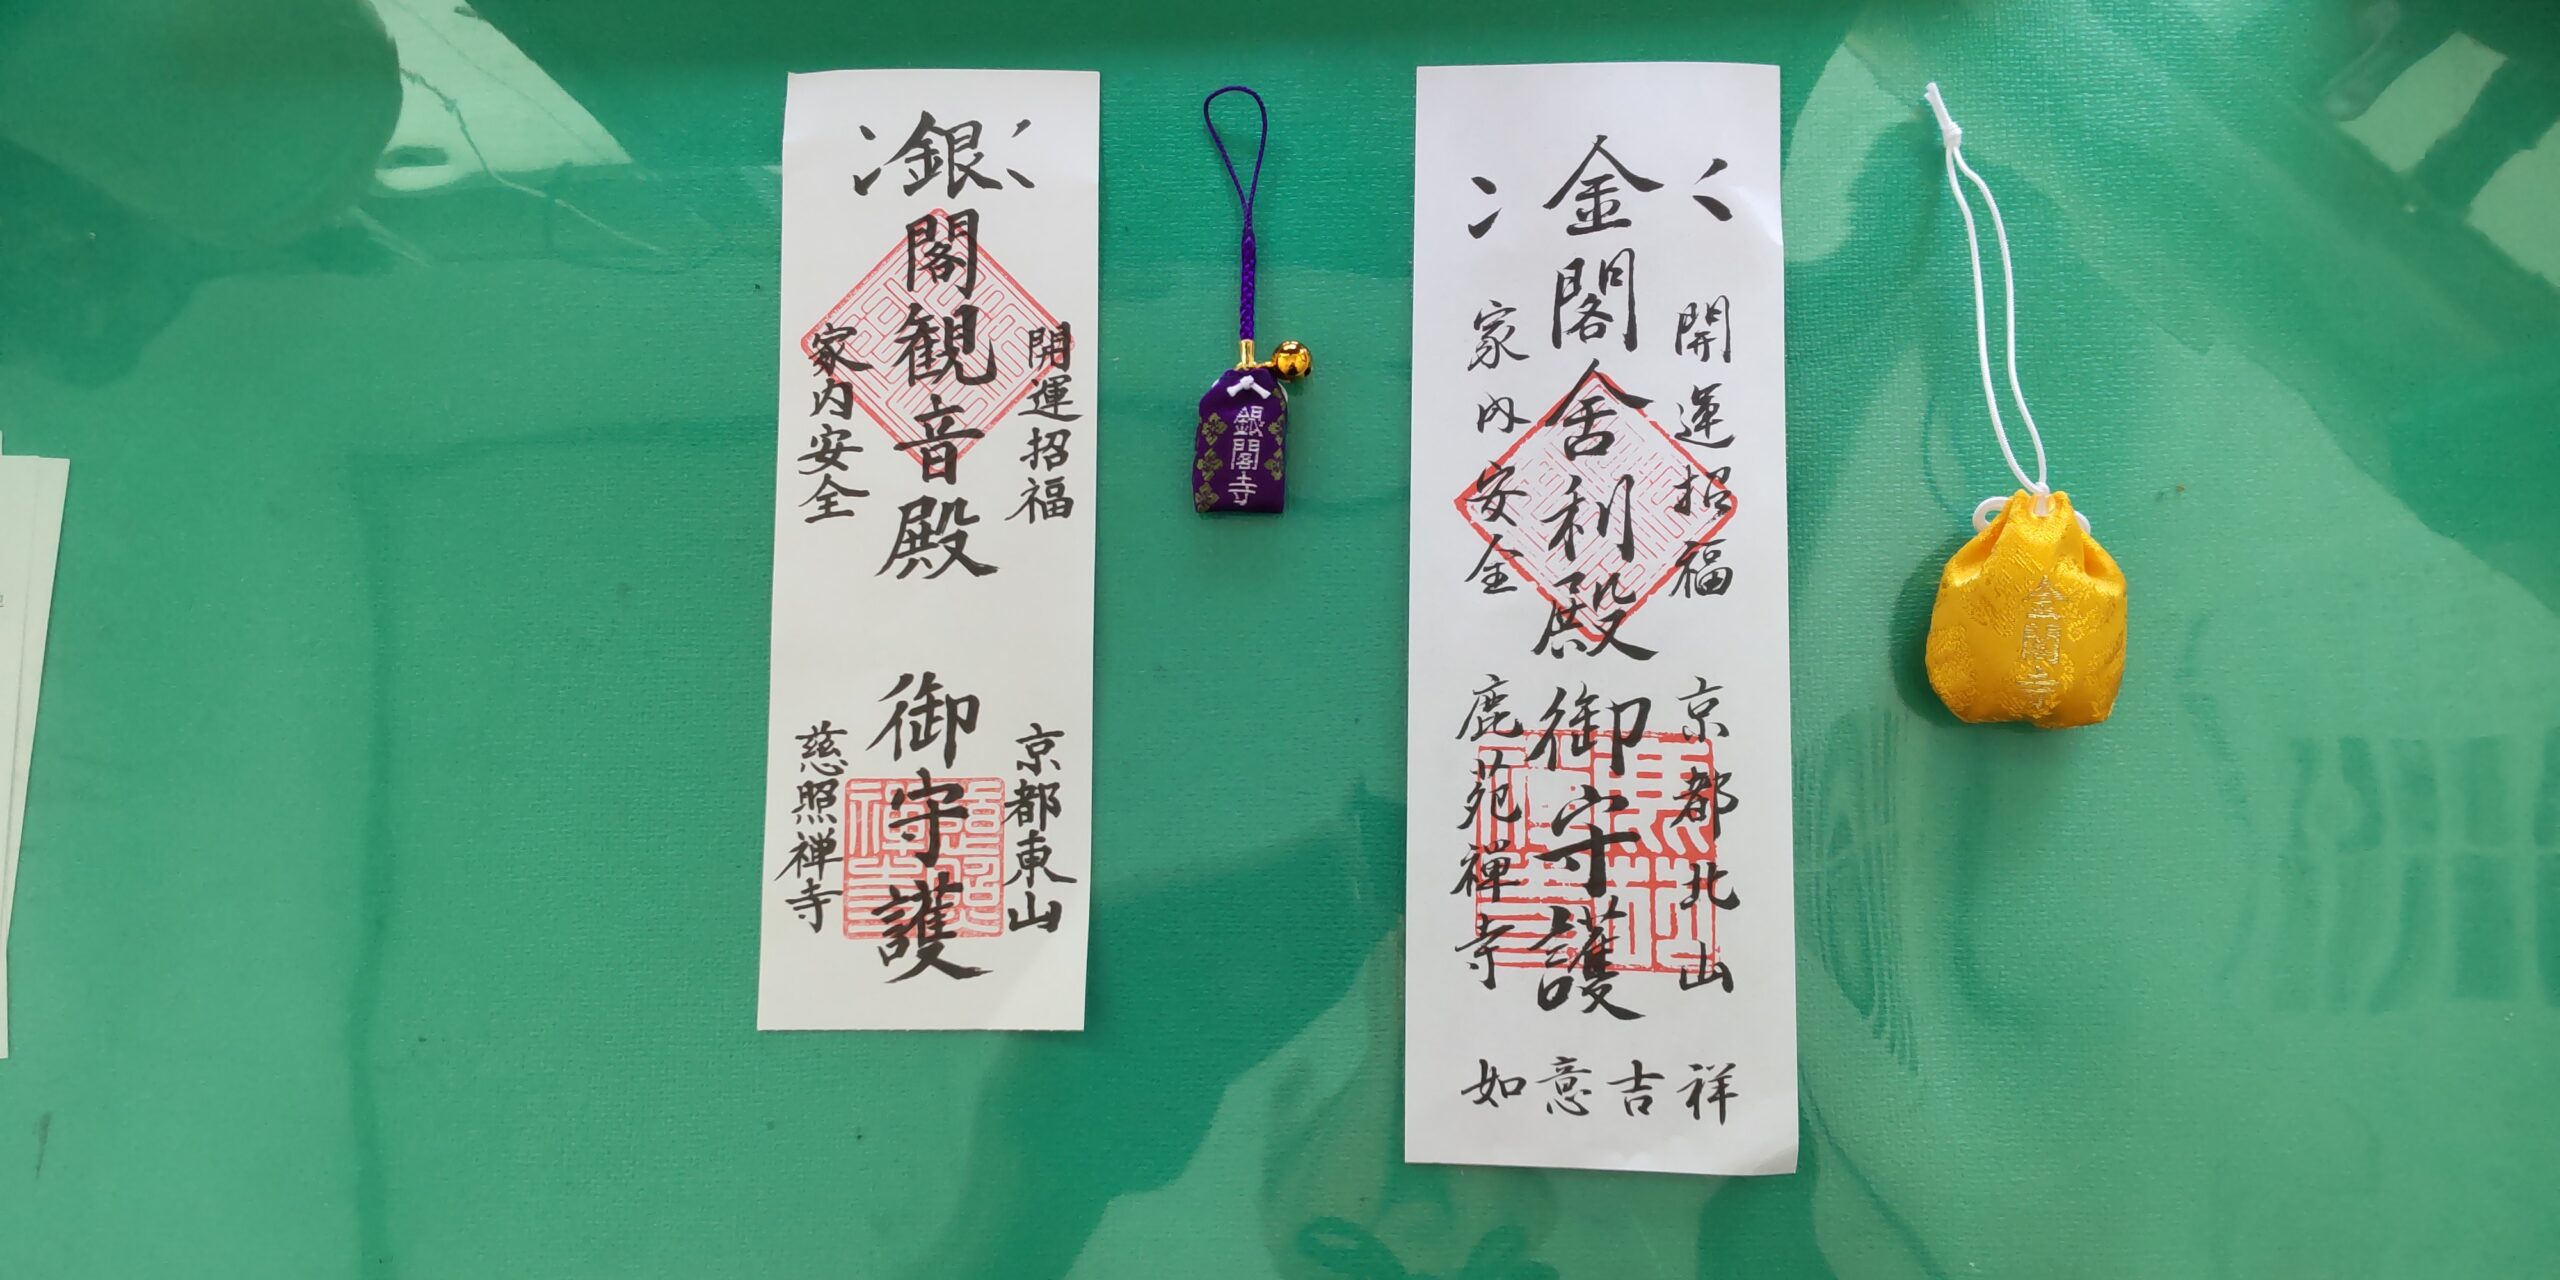 銀閣観音殿 御守護
開運招福
家内安全
京都東山
慈照禅寺
銀閣寺
金閣舎利殿 御守護
開運招福
家内安全
京都北山
鹿苑禅寺
如意吉祥
金閣寺